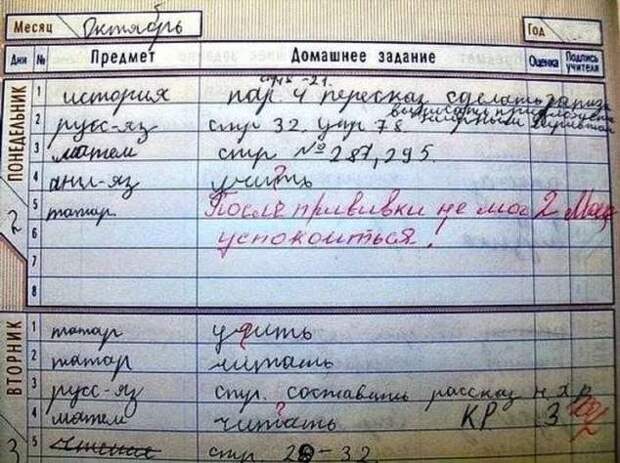 Месяц Октябрь Год
Дни № Предмет Домашнее задание Оценка Подпись учителя
ПОНЕДЕЛЬНИК
2
стр -21.
1 история пар. 4 пересказ сделать
2 русс-яз стр 32. упр 78
3 матем стр № 287, 295.
4 анг-яз учить
?
5 татар После прививки не мог 2
6 успокоиться!
7
8
ВТОРНИК
3
1 татар учить
2 татар читать
3 русс-яз стр. составить рассказ
?
4 матем читать КР 3
5 чтение стр 28-32